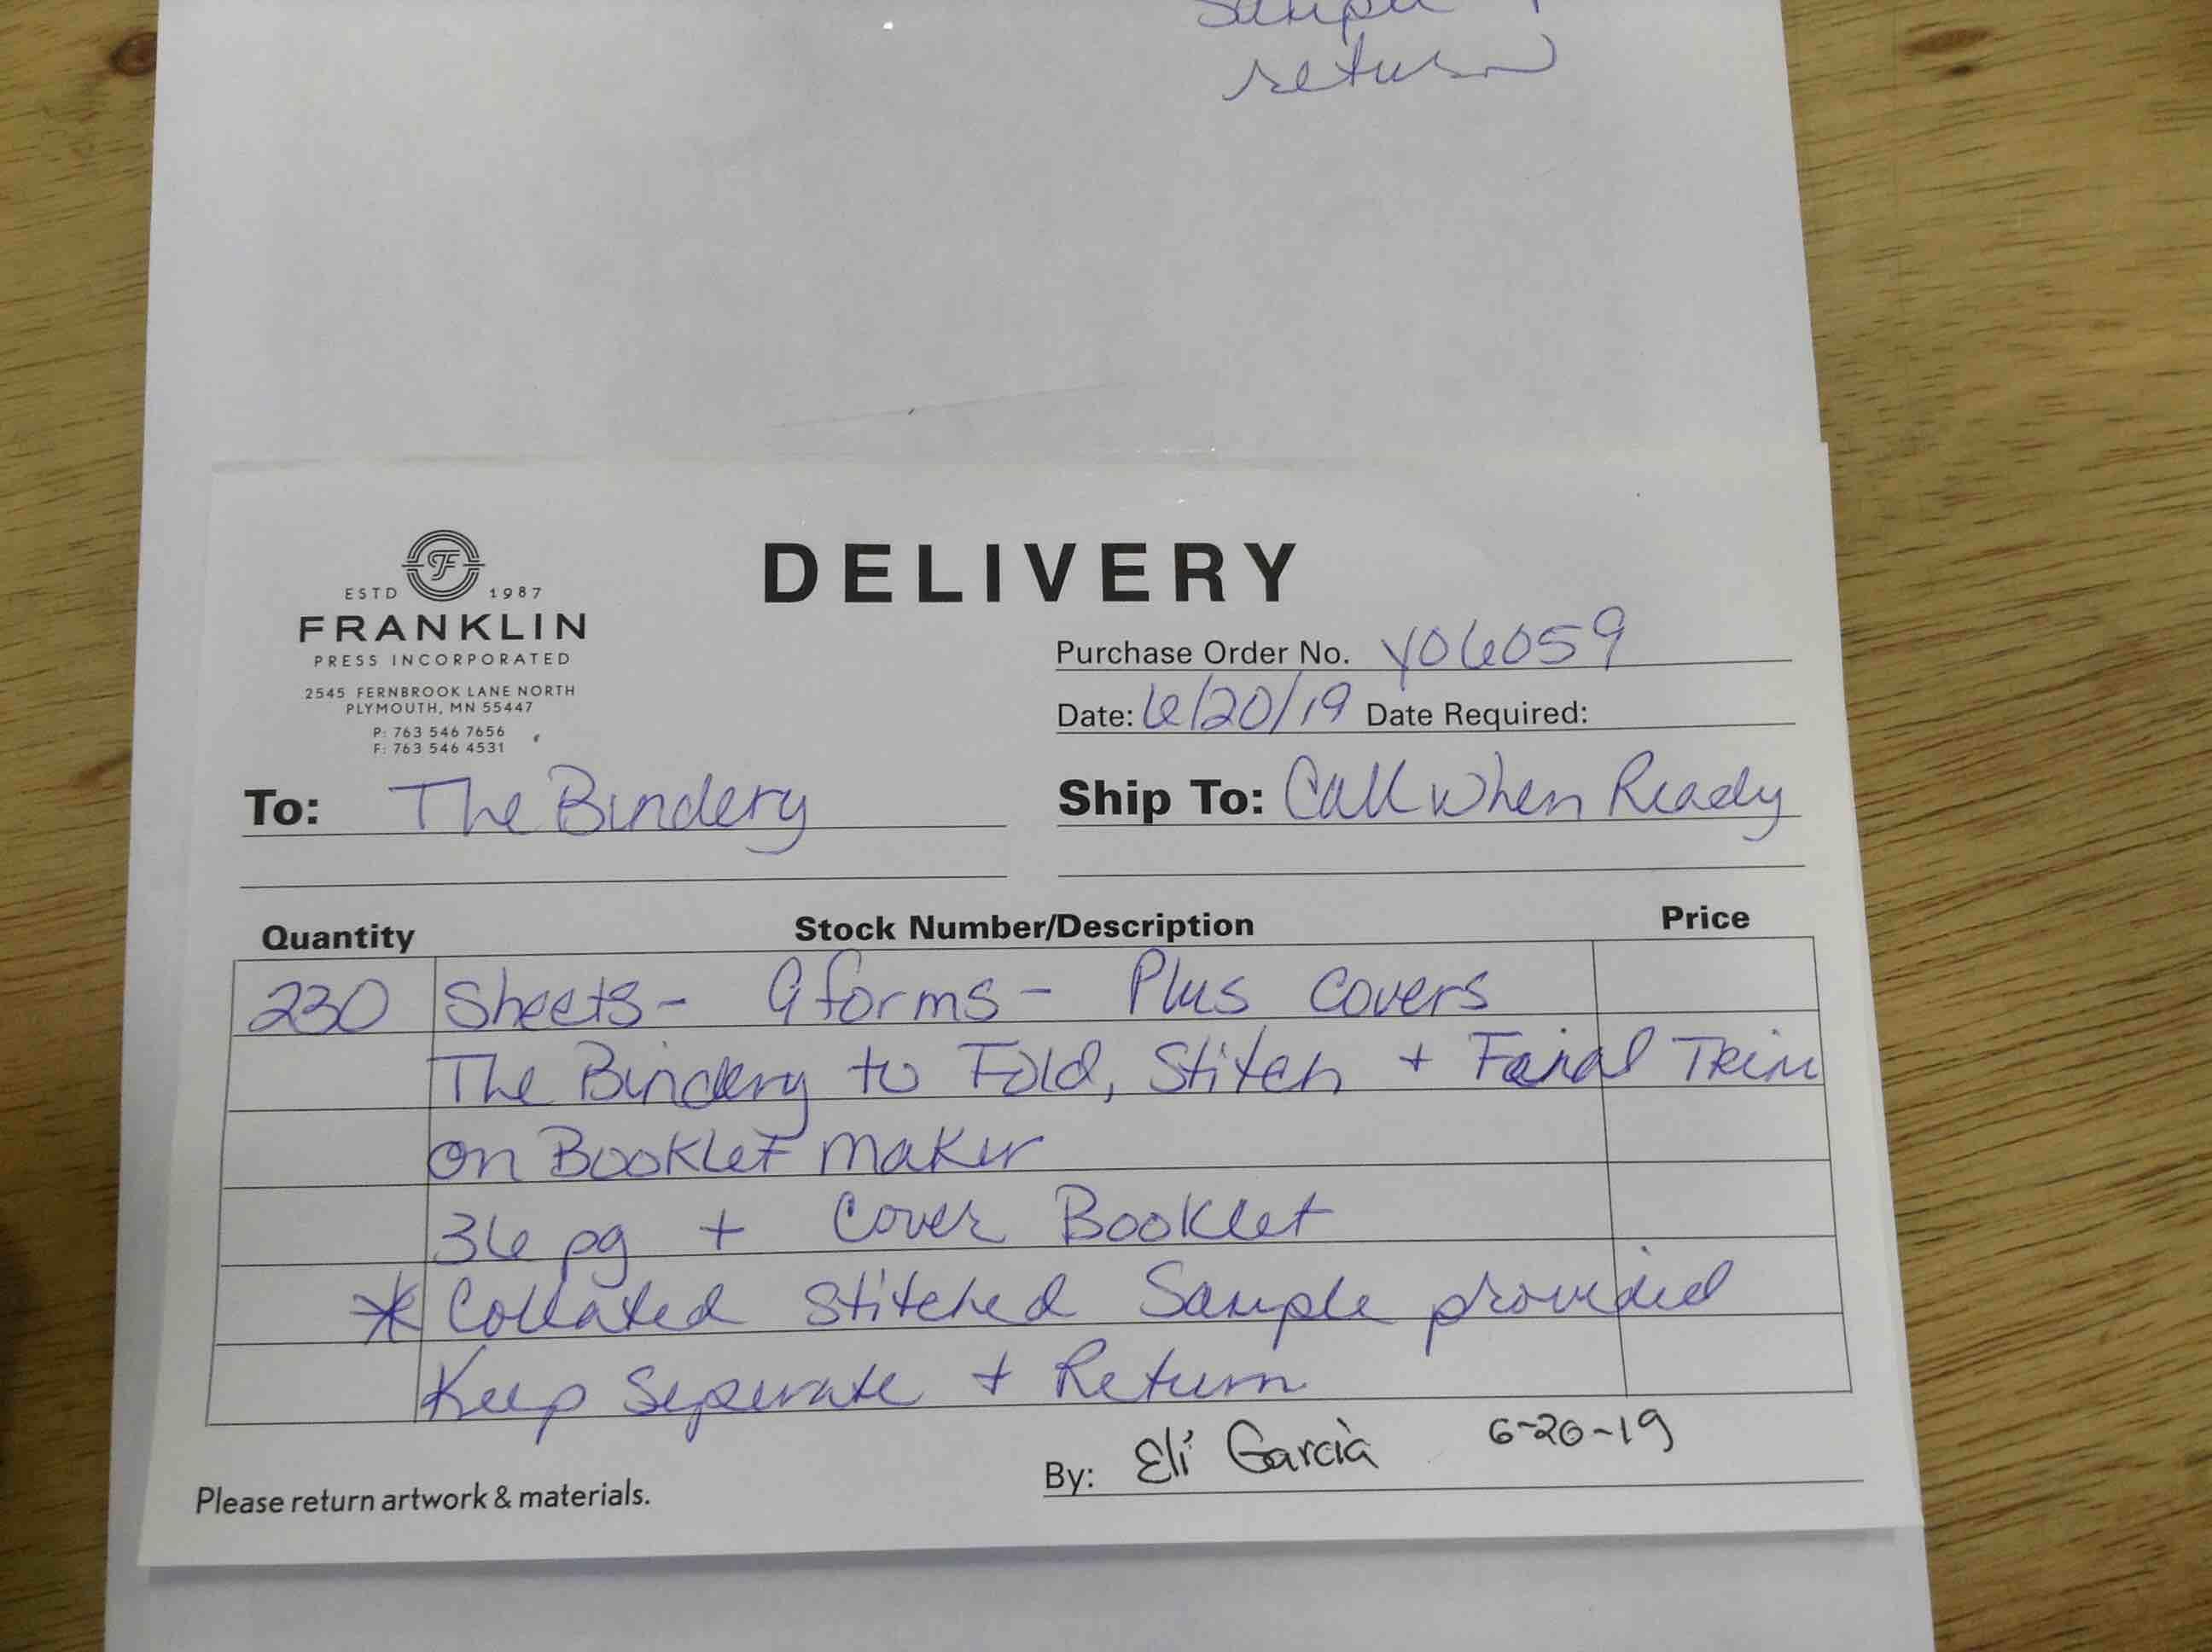 return
ESTD 1987
FRANKLIN
PRESS INCORPORATED
2545 FERNBROOK LANE NORTH
PLYMOUTH, MN 55447
P: 763 546 7656
F: 763 546 4531
DELIVERY
Purchase Order No. Y06059
Date: 6/20/19 Date Required:
To: The Bindery
Ship To: Call When Ready
Quantity Stock Number/Description Price
230 Sheets - 9 forms - Plus Covers
The Bindery to Fold, Stitch + Fainal Trim
on Booklet maker
36 pg + Cover Booklet
* Collated Stitched Sample provided
Keep Seperate + Return
Please return artwork & materials.
By: Eli Garcià 6-20-19